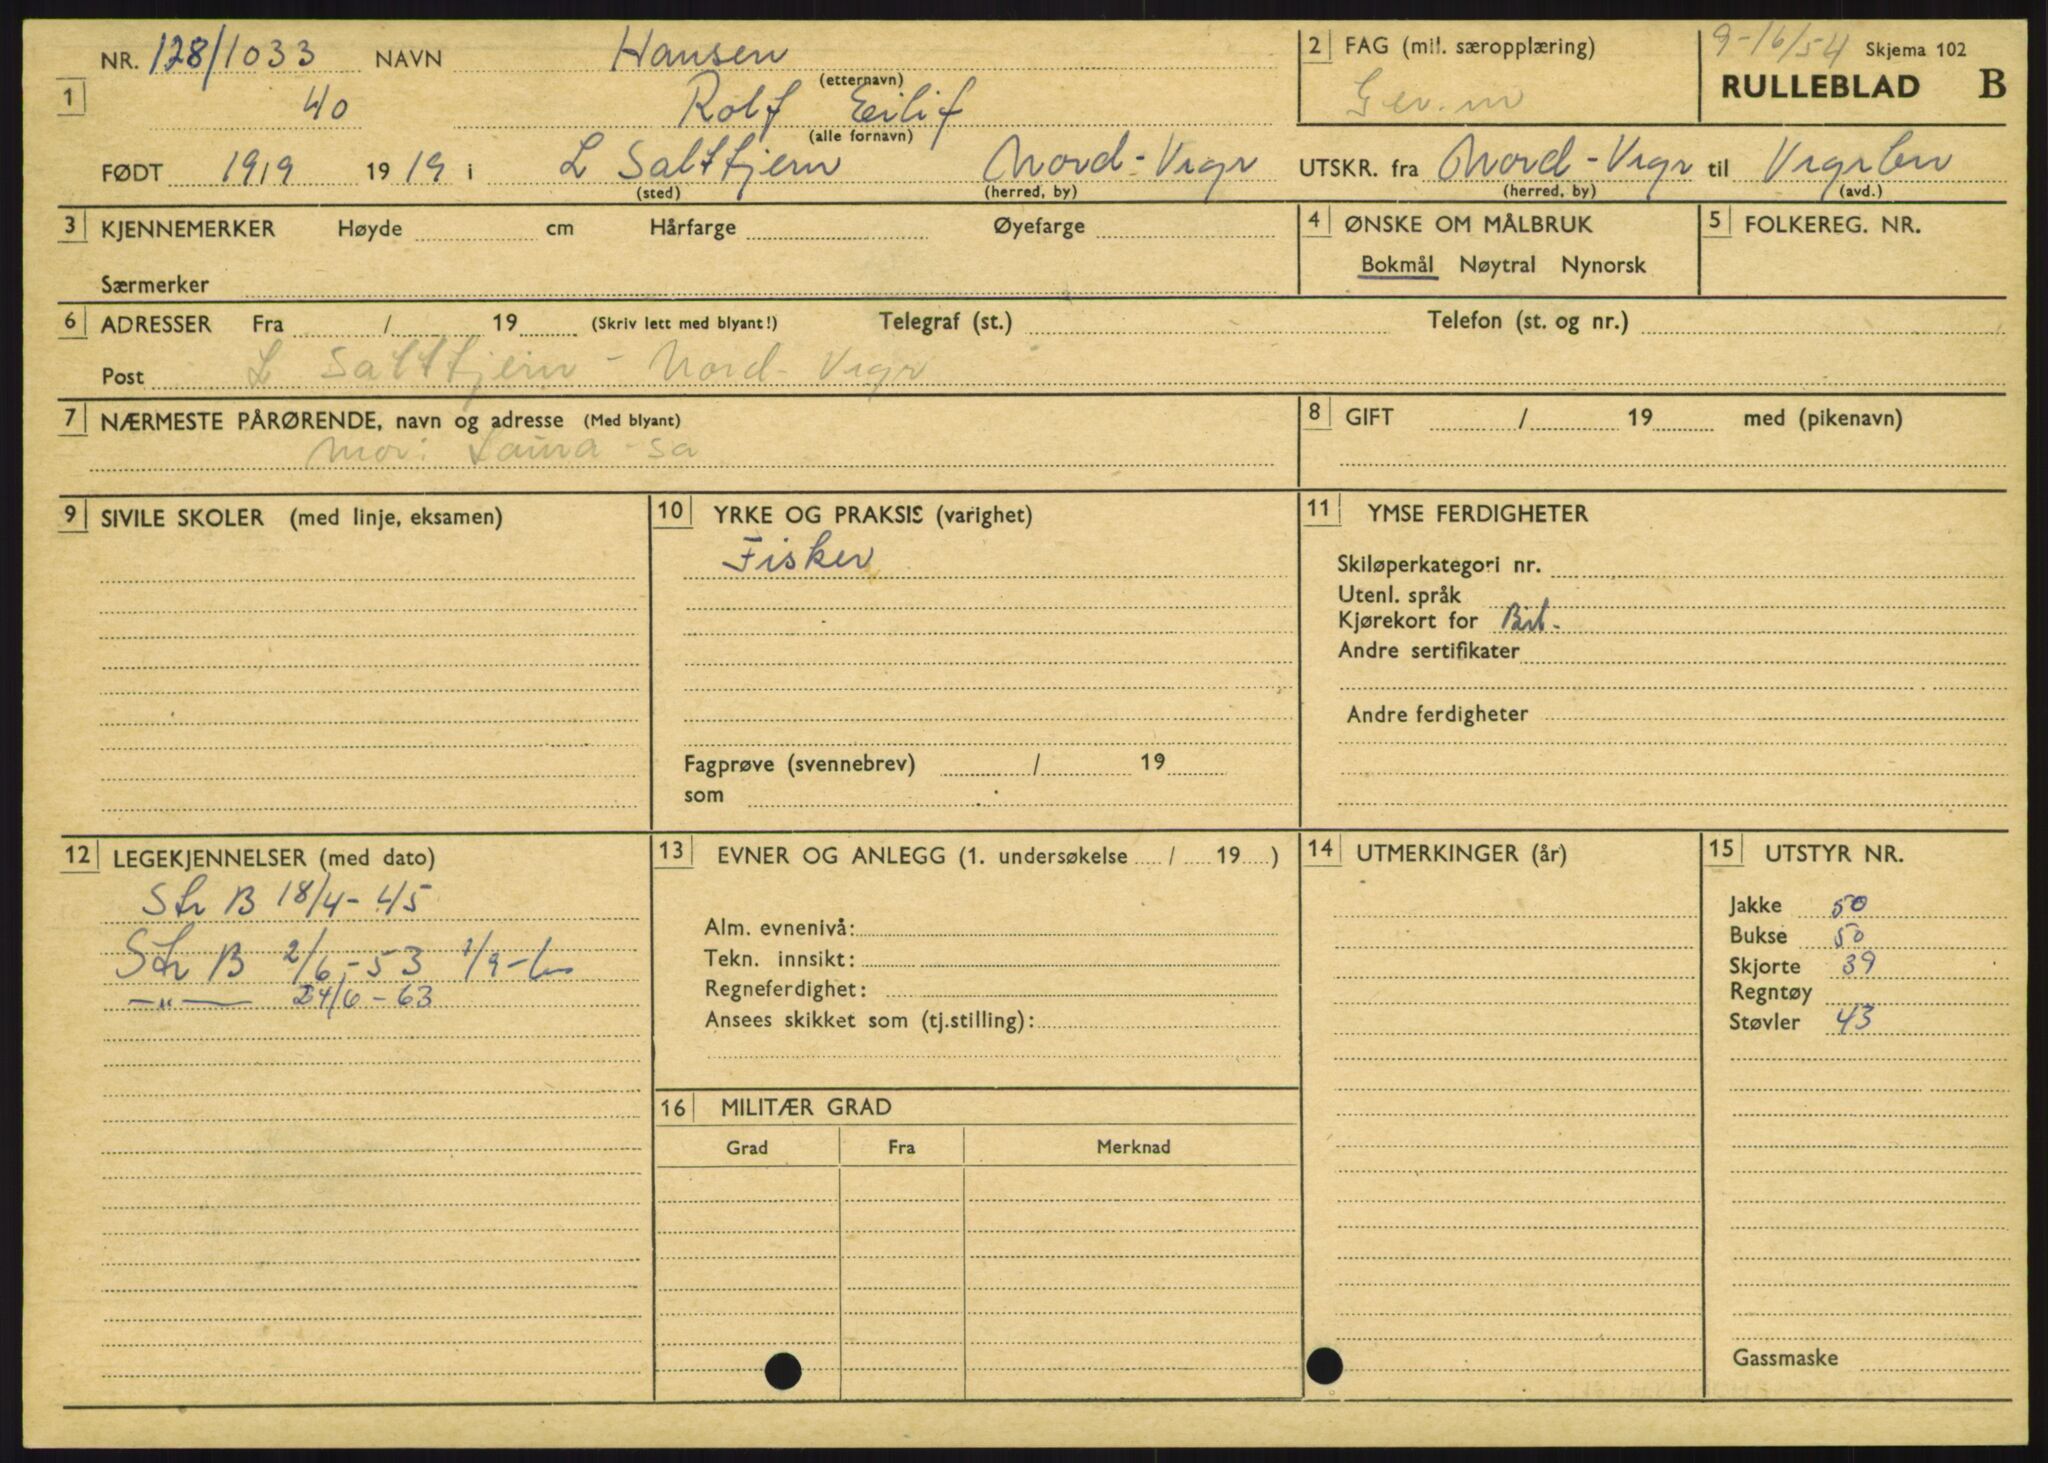 NR. 128/1033 NAVN Hansen 2 FAG (mil. særopplæring) 9-16/54 Skjema 102
(etternavn)
1 40 Rolf Eilif Gev.m RULLEBLAD B
(alle fornavn)
FØDT 19/9 1919 i L Salttjern Nord-Vrgr UTSKR. fra Nord-Vrgr til
(sted) (herred, by) (herred, by) (avd.)
3 KJENNEMERKER Høyde cm Hårfarge Øyefarge 4 ØNSKE OM MÅLBRUK 5 FOLKEREG. NR.
Bokmål Nøytral Nynorsk
Særmerker
6 ADRESSER Fra / 19 (Skriv lett med blyant!) Telegraf (st.) Telefon (st. og nr.)
Post L Salttjern - Nord-Vrgr
7 NÆRMESTE PÅRØRENDE, navn og adresse (Med blyant) 8 GIFT / 19 med (pikenavn)
Mor: Laura - sa
9 SIVILE SKOLER (med linje, eksamen) 10 YRKE OG PRAKSIS (varighet) 11 YMSE FERDIGHETER
Fisker
Skiløperkategori nr.
Utenl. språk
Kjørekort for
Andre sertifikater
Andre ferdigheter
Fagprøve (svennebrev) / 19
som
12 LEGEKJENNELSER (med dato) 13 EVNER OG ANLEGG (1. undersøkelse / 19 ) 14 UTMERKINGER (år) 15 UTSTYR NR.
Str B 18/4-45
Str B 2/6-53
—"— 24/6-63
Alm. evnenivå:
Tekn. innsikt:
Regneferdighet:
Ansees skikket som (tj.stilling):
Jakke 50
Bukse 50
Skjorte 39
Regntøy
Støvler 43
16 MILITÆR GRAD
Grad Fra Merknad
Gassmaske